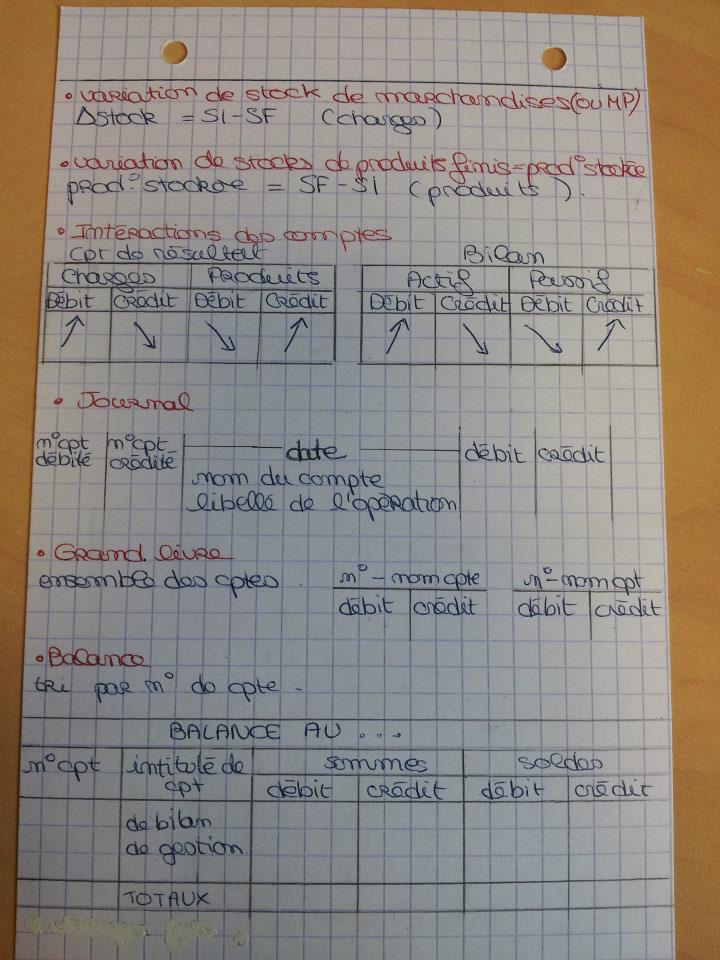 • variation de stock de marchandises (ou MP)
Δstock = SI-SF (charges)
• variation de stocks de produits finis = prod° stockée
prod° stockée = SF-SI (produits).
• Interactions des comptes
cpt de résultat
Bilan
Charges Produits
Actif Passif
Débit Crédit Débit Crédit
Débit Crédit Débit Crédit
↗ ↘ ↘ ↗
↗ ↘ ↘ ↗
• Journal
n° cpt débité
n° cpt crédité
date
débit crédit
nom du compte
libellé de l'opération
• Grand livre
ensemble des cptes.
n° - nom cpte
n° - nom cpt
débit crédit
débit crédit
• Balance
tri par n° de cpte.
BALANCE AU ...
n° cpt intitulé de sommes soldes
cpt débit crédit débit crédit
de bilan
de gestion
TOTAUX